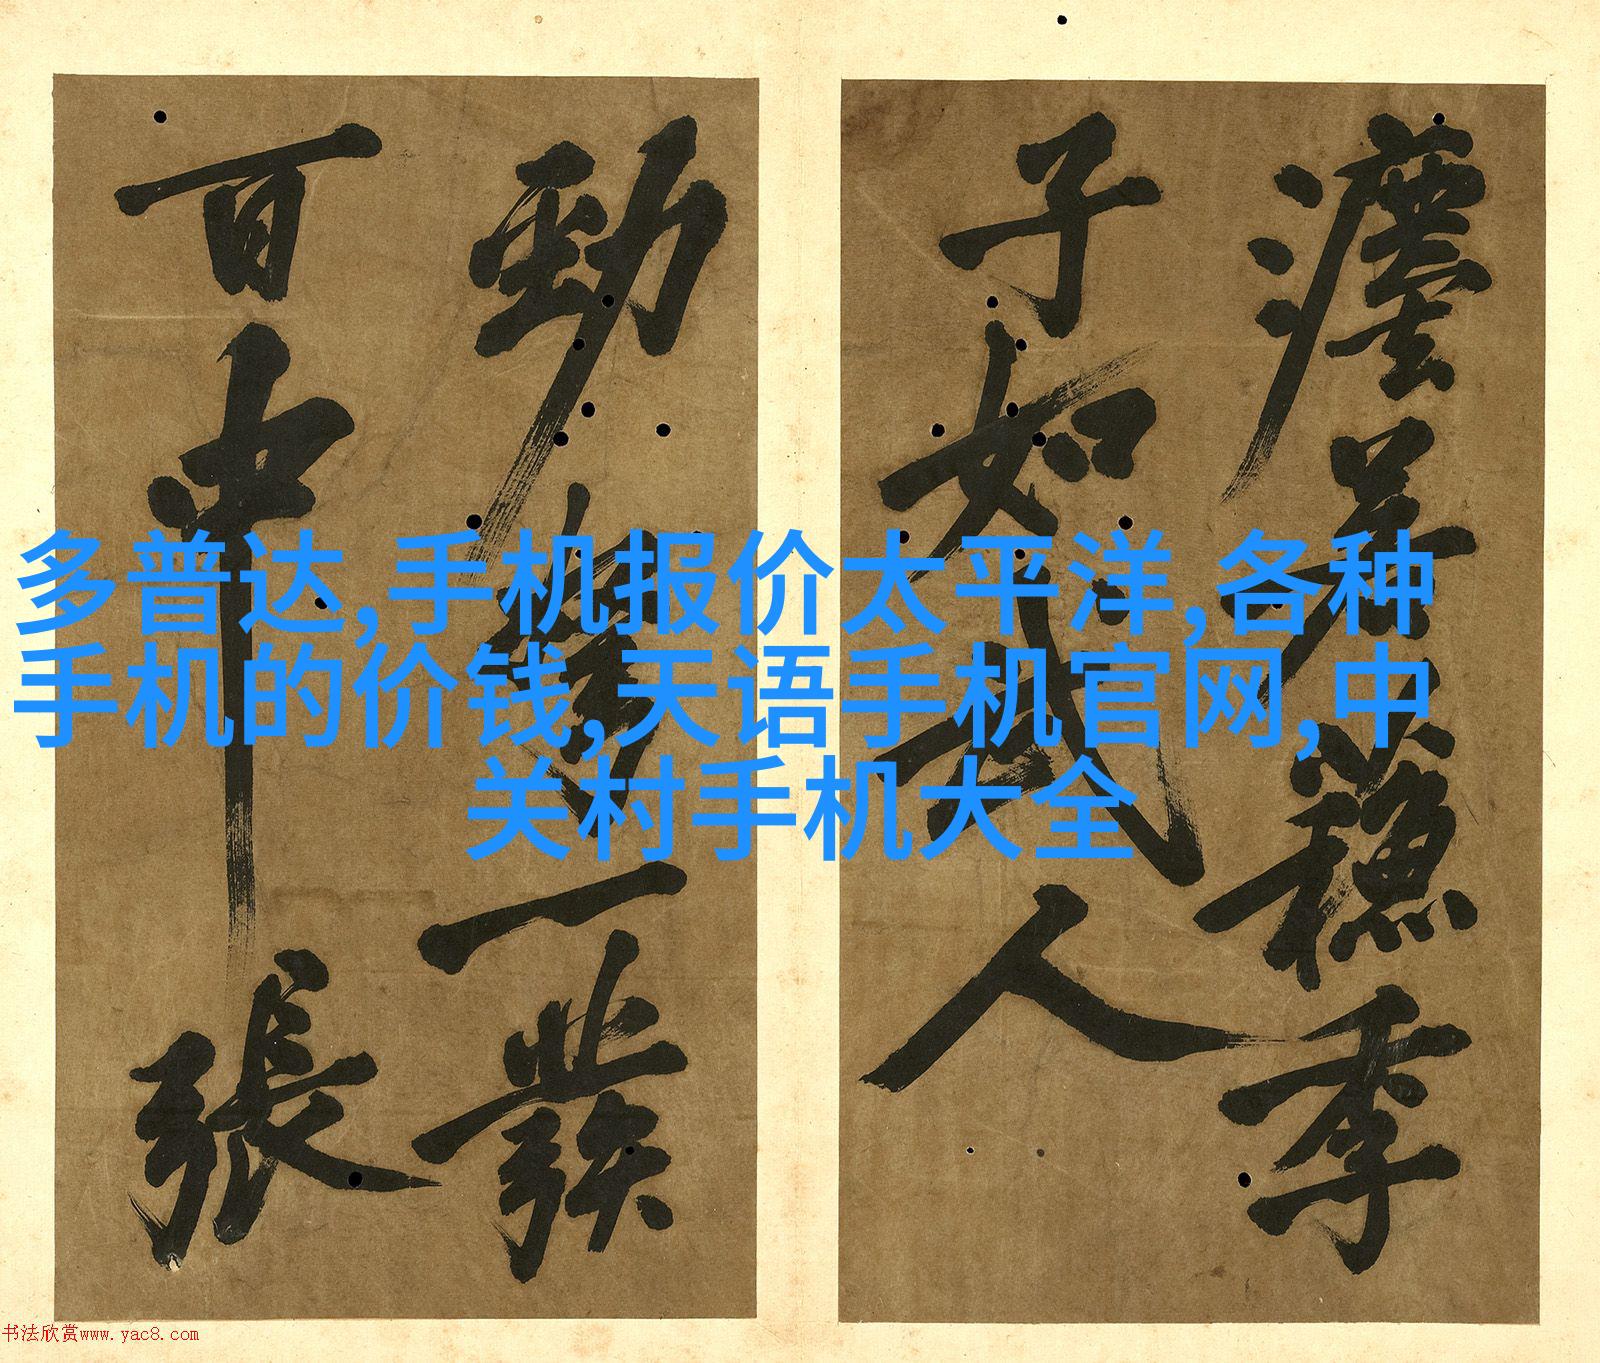 多普达,手机报价太平洋,各种
手机的价钱,天语手机官网,中
关村手机大全
季
子如武人
勁弩一發
百中張
书法欣赏www.yac8.com